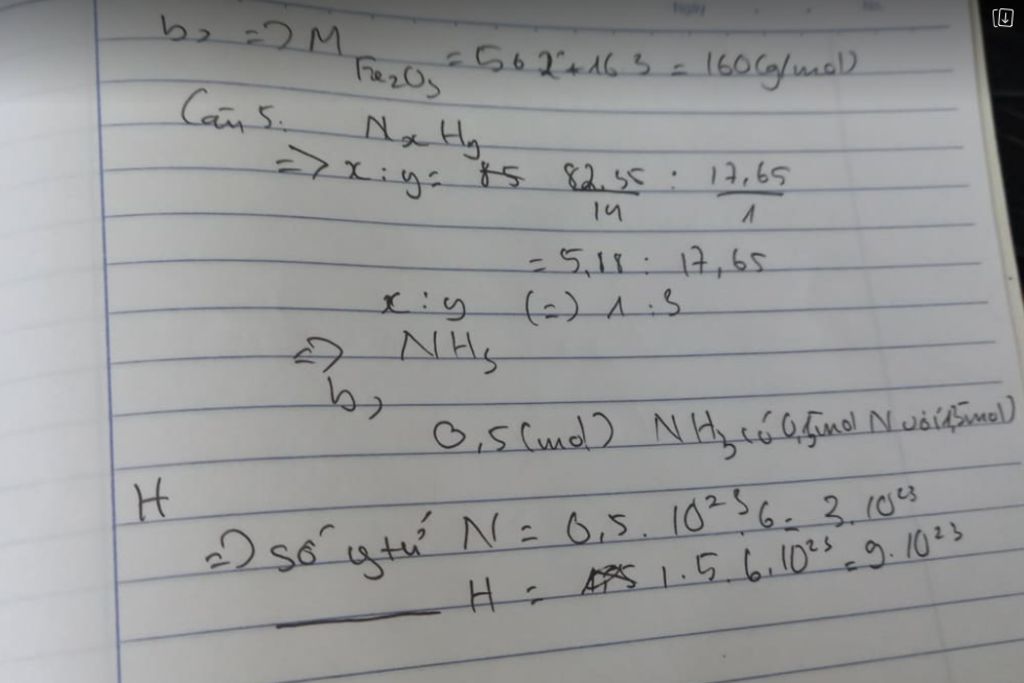 b, => M Fe2O3 = 56 2 + 16 3 = 160 (g/mol)
Câu 5: NxHy
=> x : y = 82,35/14 : 17,65/1
= 5,18 : 17,65
x : y (=) 1 : 3
=> NH3
b,
0,5 (mol) NH3 có 0,5mol N với 1,5mol)
H
=> số ytử N = 0,5 . 10^23 6 = 3.10^23
H = 1.5.6.10^23 = 9.10^23